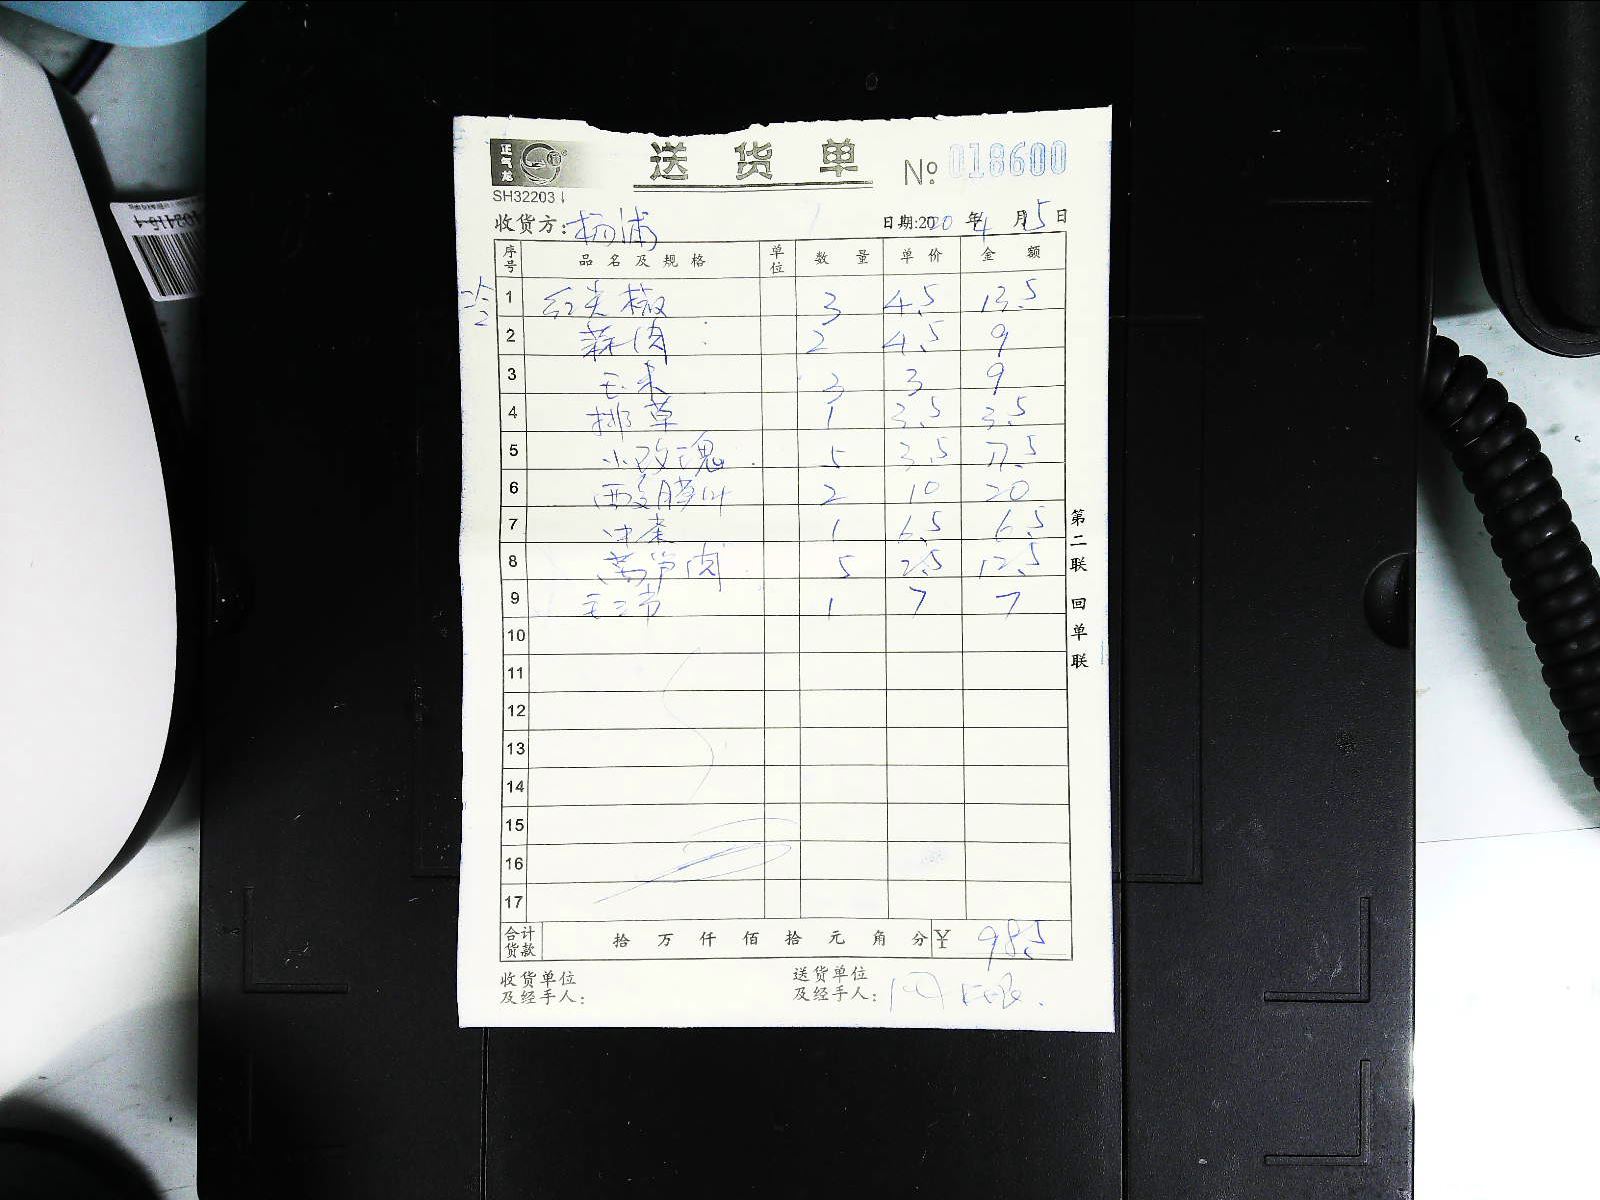 正气龙
送货单 No. 018600
SH32203
收货方: 杨浦 日期:2020年4月5日
序号 品名及规格 单位 数量 单价 金额
1 红尖椒 3 4.5 13.5
2 蒜肉 2 4.5 9
3 玉米 3 3 9
4 排草 1 3.5 3.5
5 小玫瑰 5 3.5 17.5
6 2 10 20
7 冲菜 1 6.5 6.5
8 莴笋肉 5 2.5 12.5
9 1 7 7
10
11
12
13
14
15
16
17
合计货款 拾 万 仟 佰 拾 元 角 分 ¥ 98.5
收货单位 送货单位
及经手人: 及经手人:
第二联 回单联